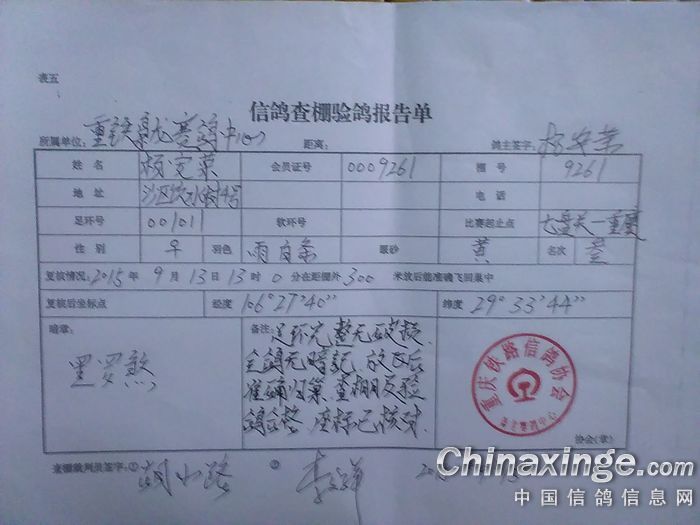 表五
信鸽查棚验鸽报告单
所属单位: 重铁翥龙赛鸽中心 距离: 鸽主签字: 杨安荣
姓名 杨安荣 会员证号 0009261 棚号 9261
地址 电话
足环号 001011 软环号 比赛起止点 七盘关一重庆
性别 羽色 雨白条 眼砂 黄 名次
复核情况: 2015 年 9 月 13 日 13 时 0 分在距棚外 300 米放后能准确飞回巢中
复核后坐标点 经度 106°27'40" 纬度 29°33'44"
暗章: 备注: 足环完整无破损.
全鸽无暗记, 放飞后
准确归巢. 查棚及验
鸽合格. 座标已核对.
重庆铁路信鸽协会
协会(章)
查棚裁判员签字: ① 胡小路 ② 李文祥
Chinaxinge.com
中国信鸽信息网